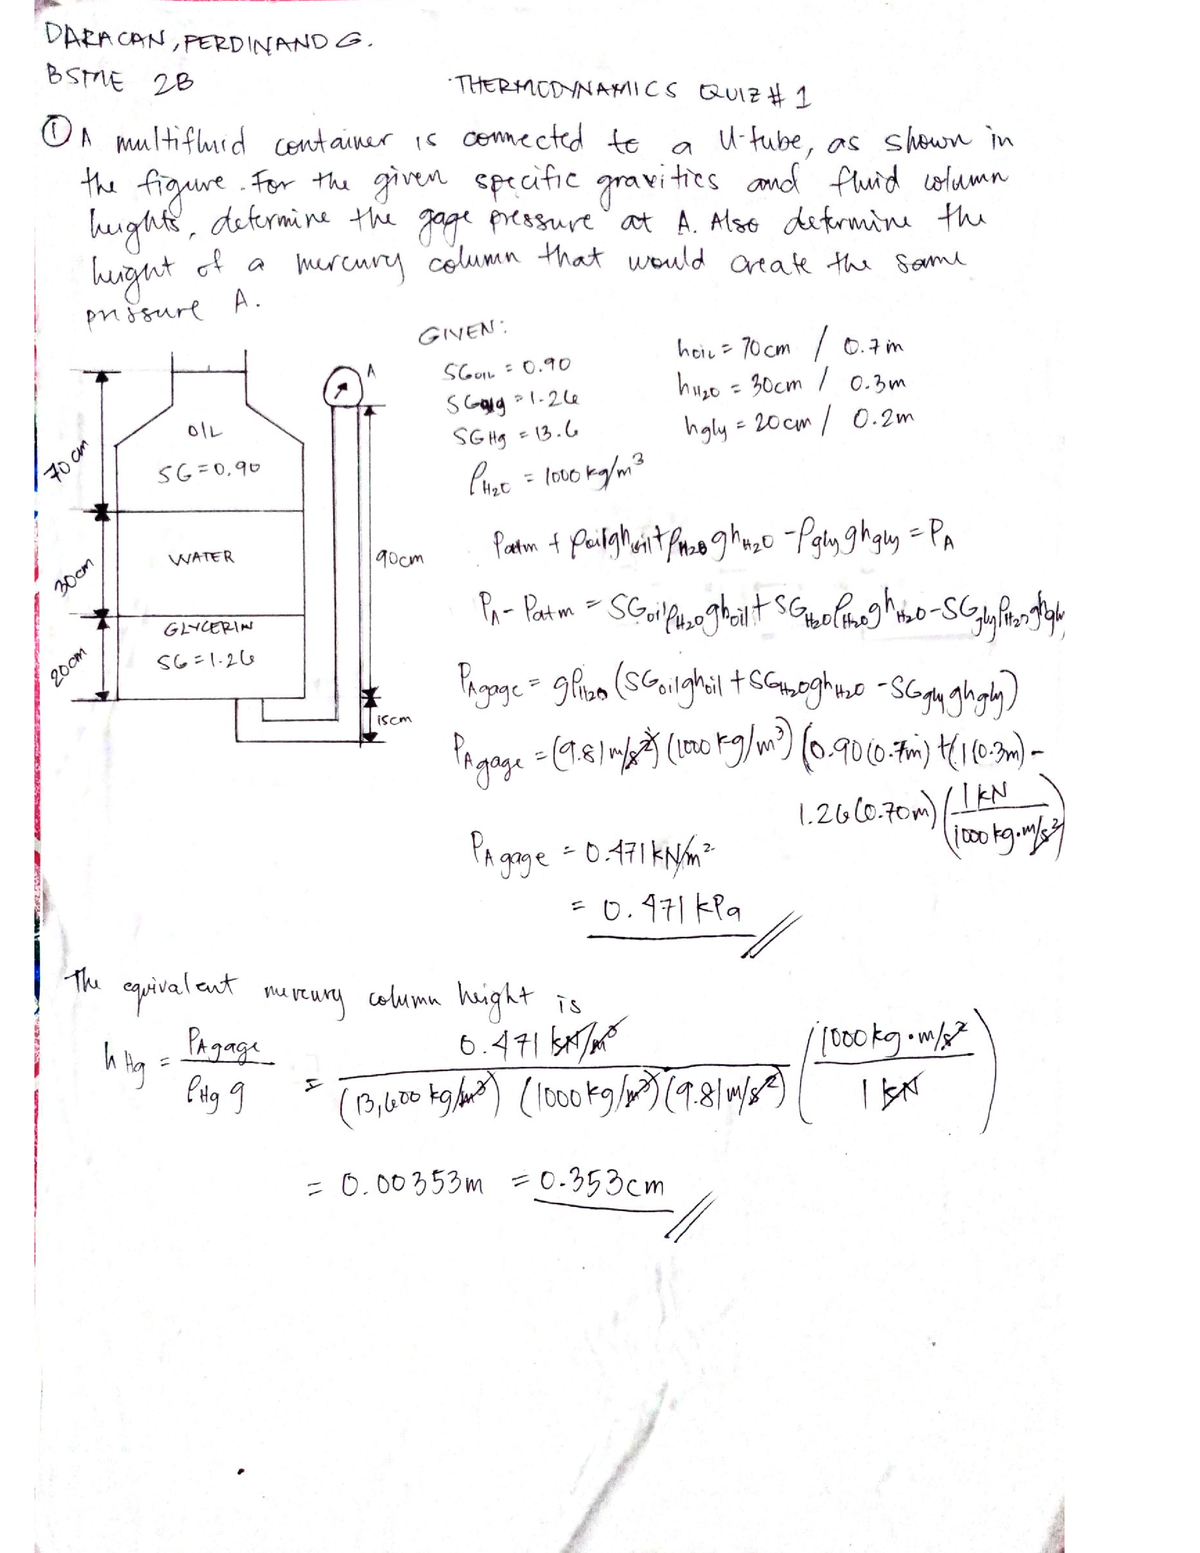 DARACAN, FERDINAND G.
BSME 2B
THERMODYNAMICS QUIZ # 1
① A multifluid container is connected to a U-tube, as shown in
the figure. For the given specific gravities and fluid column
heights, determine the gage pressure at A. Also determine the
height of a mercury column that would create the same
pressure A.
GIVEN:
SGOIL = 0.90
SGgly = 1.26
SGHg = 13.6
ρH2O = 1000 kg/m³
hoil = 70cm / 0.7m
hH2O = 30cm / 0.3m
hgly = 20cm / 0.2m
A
70 cm
OIL
SG=0.90
30cm
WATER
90cm
20cm
GLYCERIN
SG=1.26
15cm
Patm + ρoilghoil + ρH2O ghH2O - ρgly ghgly = PA
PA - Patm = SGoilρH2Oghoil + SGH2OρH2OghH2O - SGglyρH2Oghgly
PAgage = gρH2O (SGoilghoil + SGH2OghH2O - SGgly ghgly)
PAgage = (9.81 m/s²) (1000 kg/m³) (0.90(0.7m) + (1(0.3m) -
1.26(0.70m) (1 kN / 1000 kg·m/s²)
PA gage = 0.471 kN/m²
= 0.471 kPa
The equivalent mercury column height is
hHg = PAgage / ρHg g = 0.471 kN/m² / (13,600 kg/m³) (1000 kg/m³) (9.81 m/s²) (1000 kg·m/s² / 1 kN)
= 0.00353m = 0.353cm